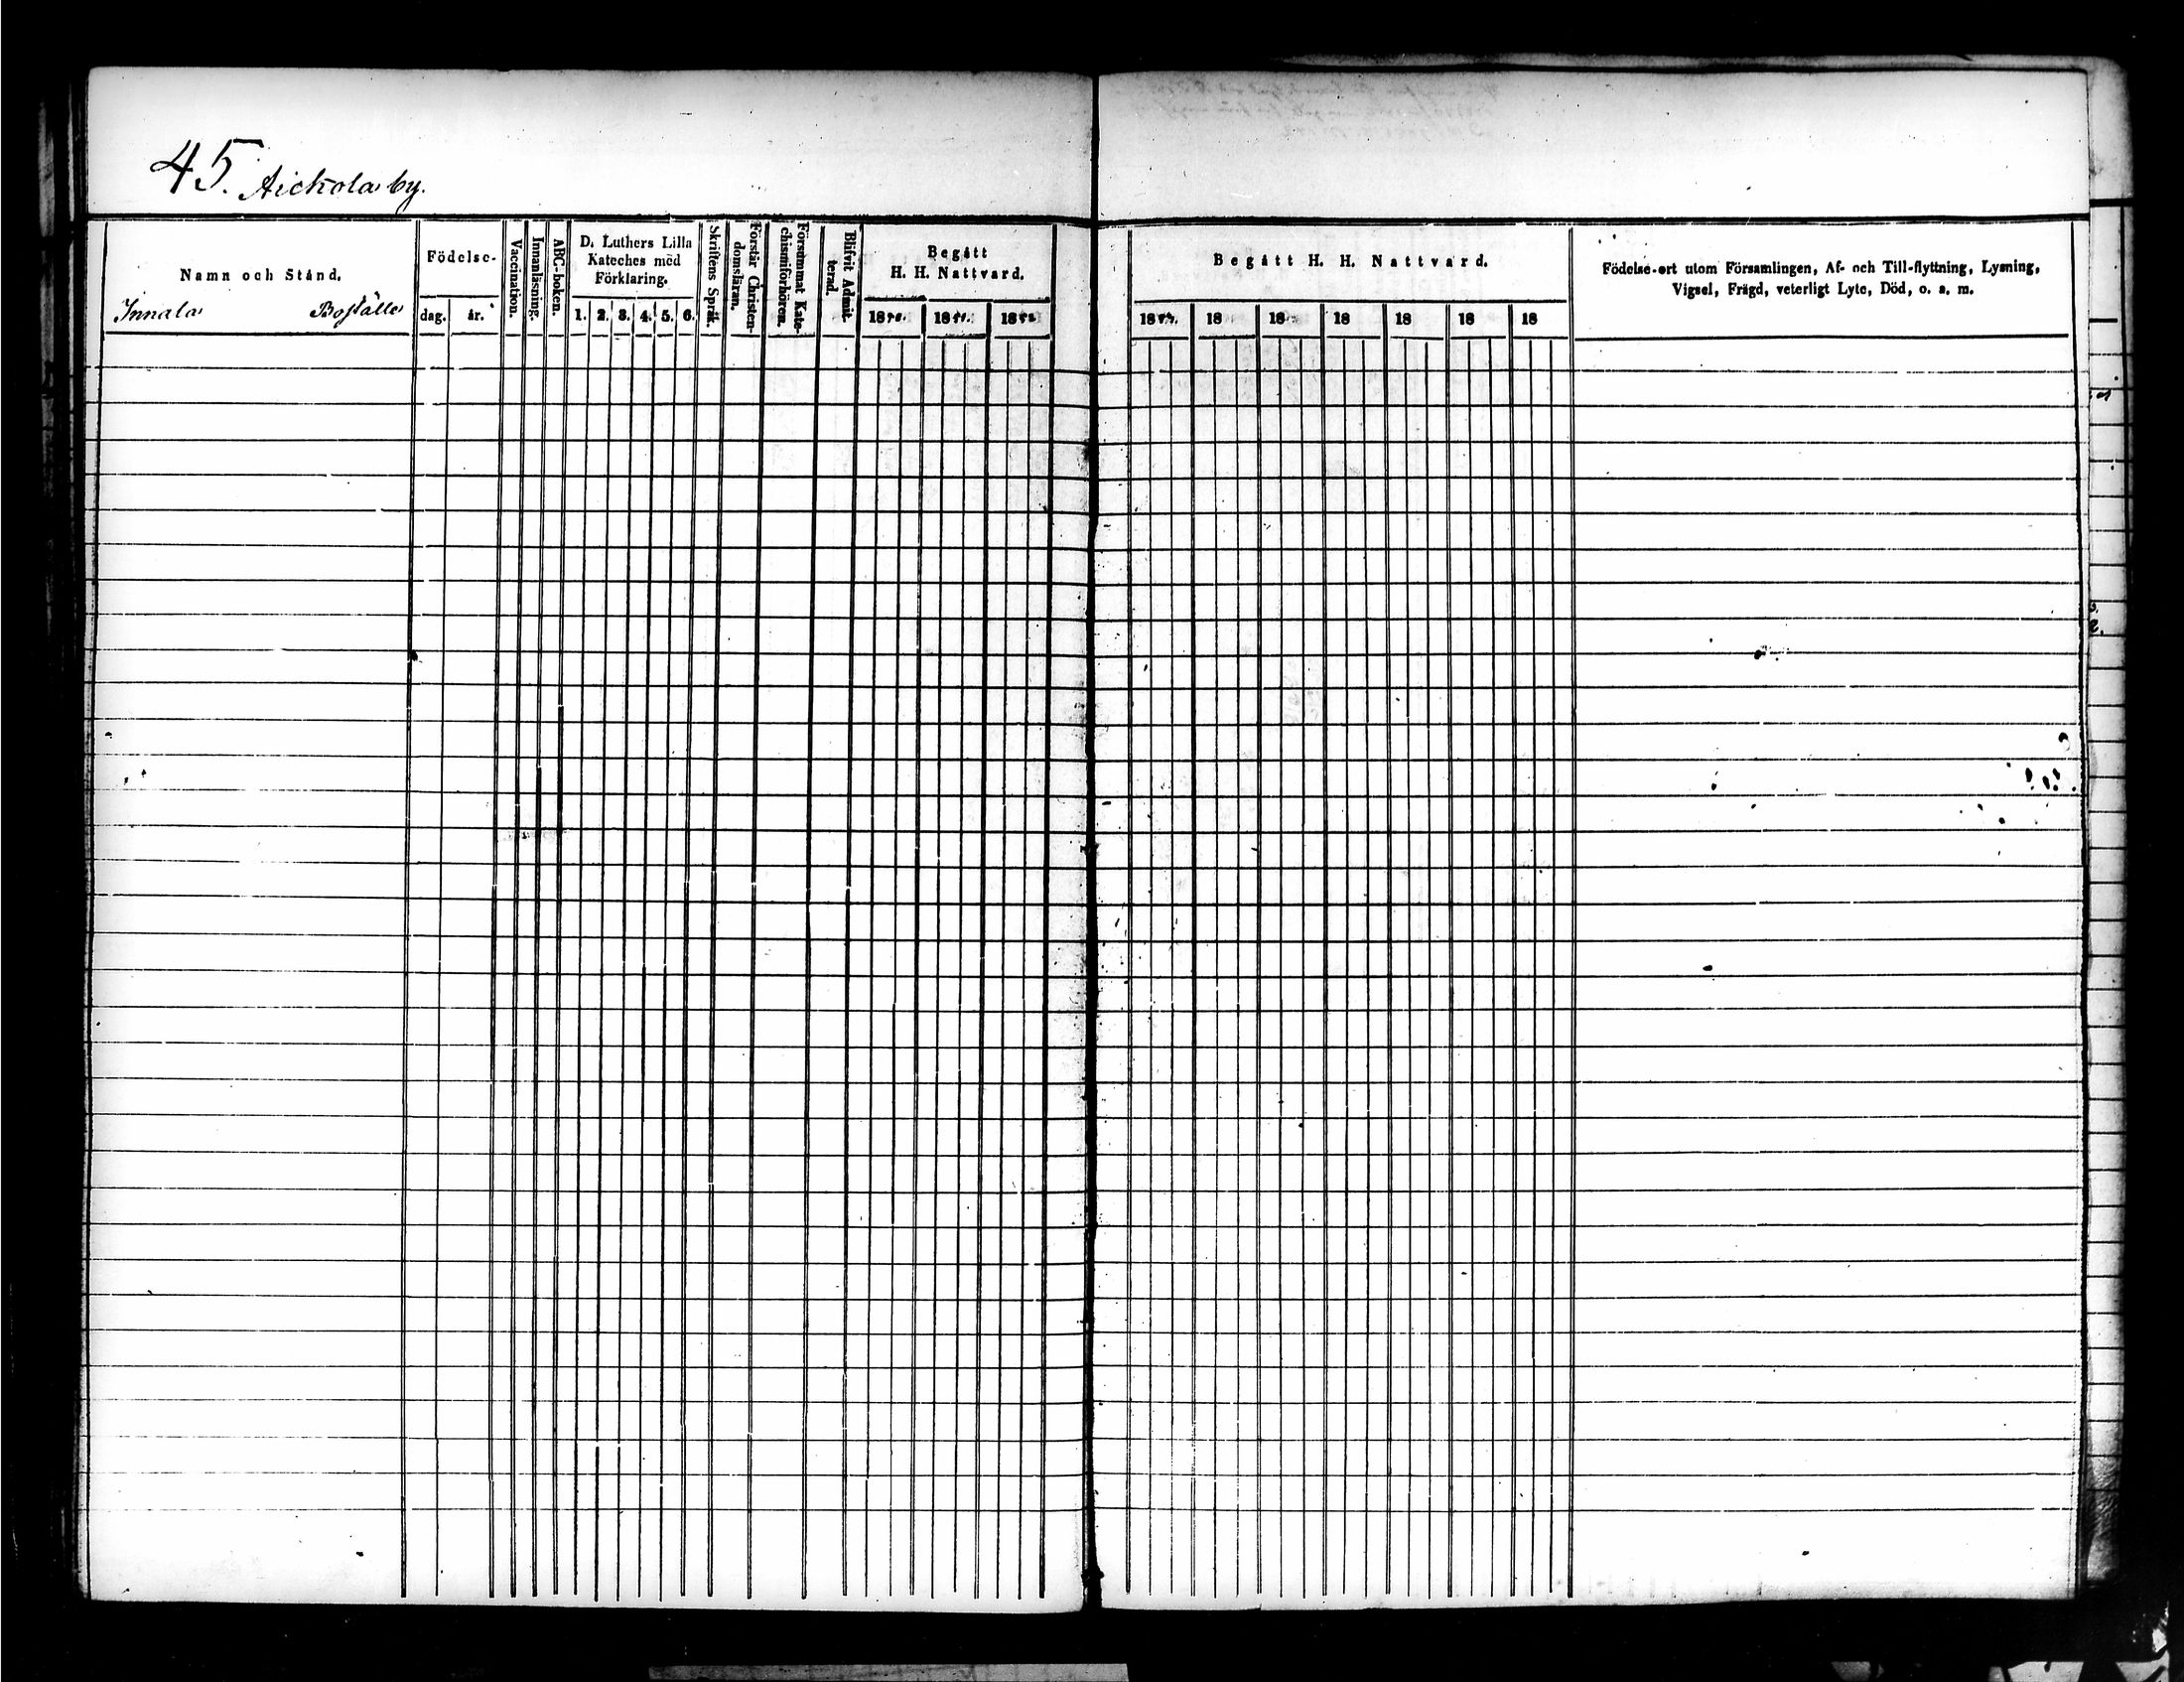 45. Aickola by.
Namn och Stånd.
Innala Boställe
Födelse-
dag. år.
Vaccination.
Innanläsning.
ABC-boken.
D. Luthers Lilla
Kateches med
Förklaring.
1. 2. 3. 4. 5. 6.
Skriftens Språk.
Förstår Christen-
domsläran.
Försummat Kate-
chismiförhören.
Blifvit Admit-
terad.
Begått
H. H. Nattvard.
18 18 18
Begått H. H. Nattvard.
18 18 18 18 18 18 18
Födelse-ort utom Församlingen, Af- och Till-flyttning, Lysning,
Vigsel, Frägd, veterligt Lyte, Död, o. s. m.